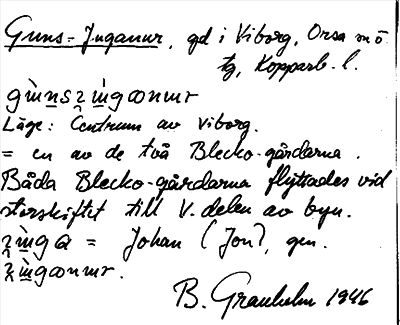 Guns-Inganur, gd i Viborg, Orsa mö
tg, Kopparb. l.
gùnszìngɷnur
Läge: Centrum av Viborg.
= en av de två Blecko-gårdarna.
Båda Blecko-gårdarna flyttades vid
storskiftet till V. delen av byn.
zìnga = Johan (Jon), gen.
zìngɷnur.
B. Granholm 1946